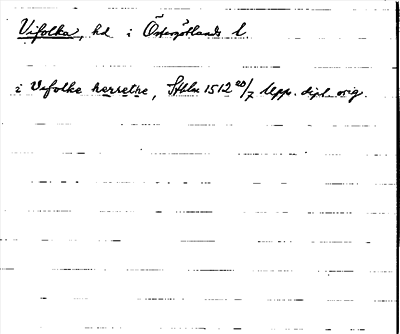 Vifolka, hd i Östergötlands l
i Vifolke herretne, Sthlm 1512 20/7 Upps. dipl. orig.